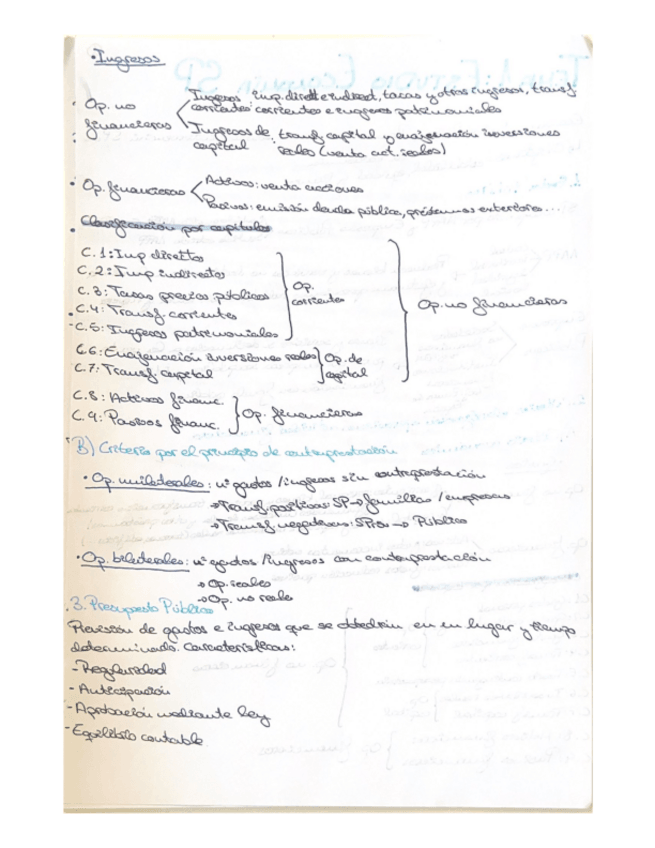 • Ingresos
• Op. no financieras
Ingresos corrientes: imp. direct e indirect, tasas y otros ingresos, transf corrientes e ingresos patrimoniales
Ingresos de capital: transf capital y enajenación inversiones reales (venta act. reales)
• Op. financieras
Activos: venta acciones
Pasivos: emisión deuda pública, préstamos exteriores...
• Clasificación por capítulos
C.1: Imp directos
C.2: Imp indirectos
C.3: Tasas precios públicos
C.4: Transf. corrientes
C.5: Ingresos patrimoniales
Op. corrientes
C.6: Enajenación inversiones reales
C.7: Transf. capital
Op. de capital
Op. no financieras
C.8: Activos financ.
C.9: Pasivos financ.
Op. financieras
B) Criterio por el principio de contraprestación
• Op. unilaterales: nº gastos / ingresos sin contraprestación
→ Transf. positivas: SP → familias / empresas
→ Transf. negativas: SPriv → Público
• Op. bilaterales: nº gastos / ingresos con contraprestación
→ Op. reales
→ Op. no reales
3. Presupuesto Público
Previsión de gastos e ingresos que se obtedrán en un lugar y tiempo
determinado. Características:
- Regularidad
- Anticipación
- Aprobación mediante ley
- Equilibrio contable